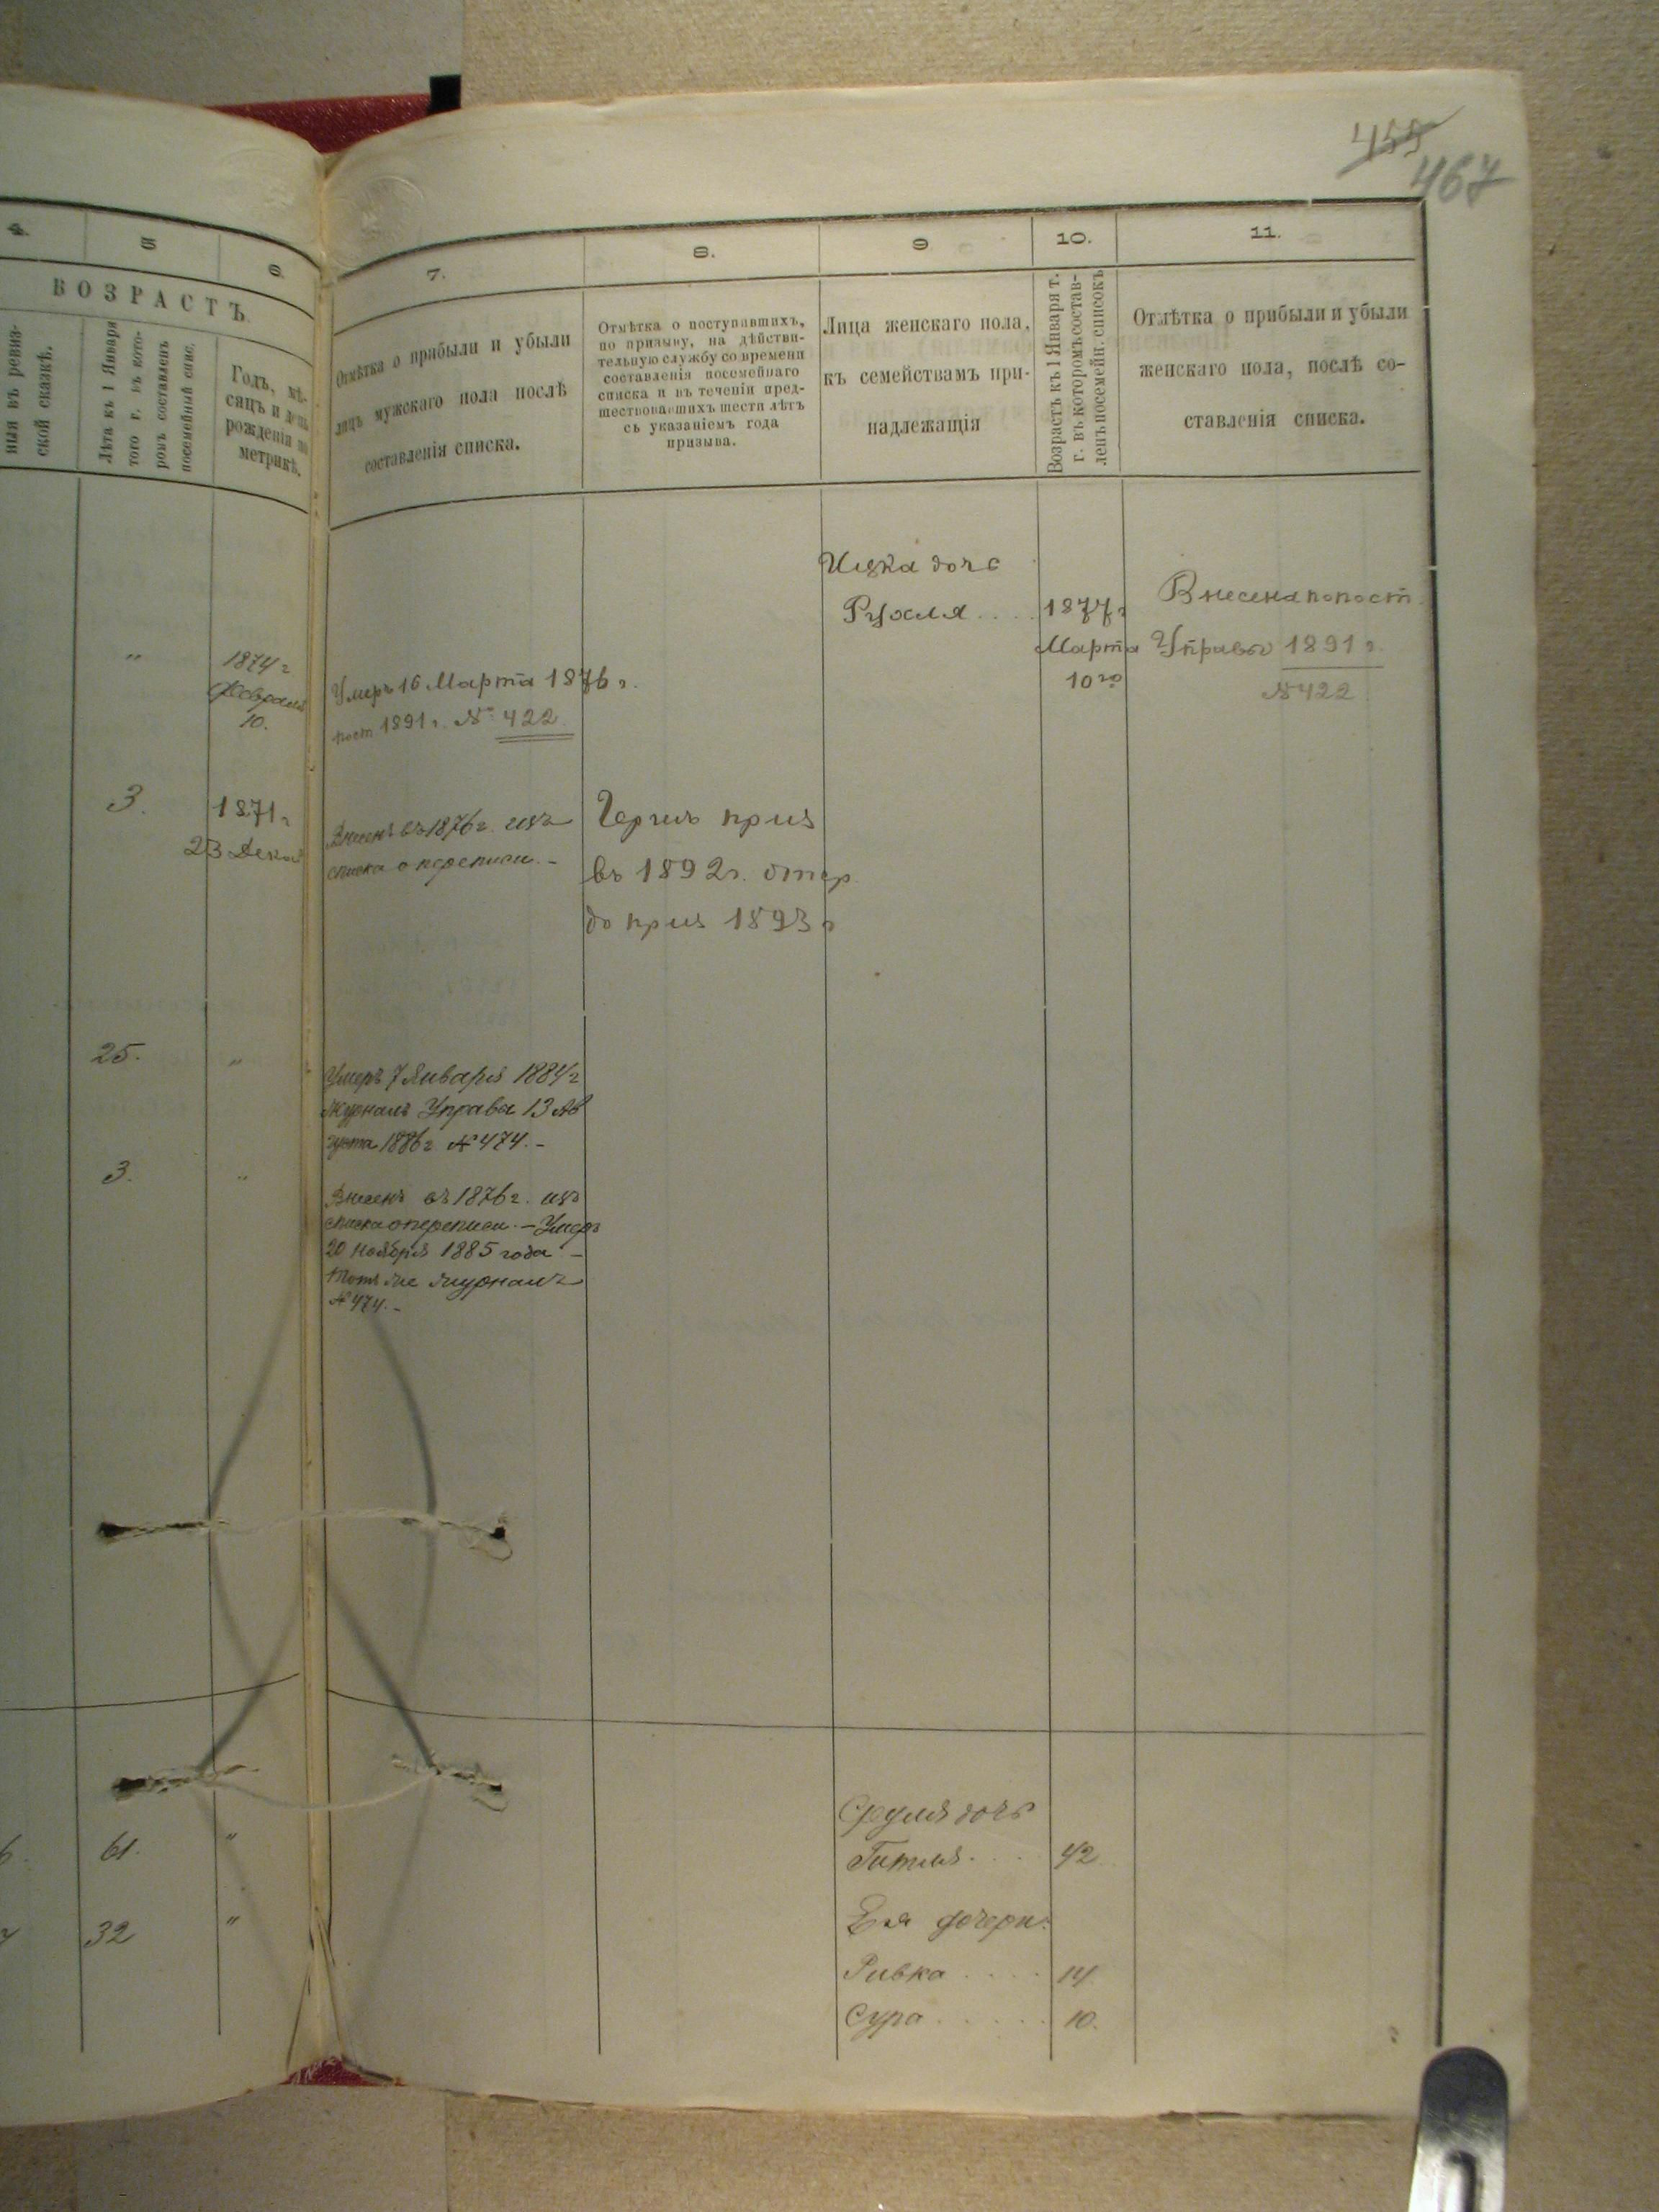 455
467
4.
5
6.
7.
8.
9
10.
11.
ВОЗРАСТЪ
ныя въ ревиз-
ской сказкѣ.
Лѣта къ 1 Января
того г. въ кото-
ромъ составленъ
посемейный спис.
Годъ, мѣ-
сяцъ и день
рожденія по
метрикѣ.
Отмѣтка о прибыли и убыли
лицъ мужскаго пола послѣ
составленія списка.
Отмѣтка о поступившихъ,
по призыву, на дѣйстви-
тельную службу со времени
составленія посемейнаго
списка и въ теченіи пред-
шествовавшихъ шести лѣтъ
съ указаніемъ года
призыва.
Лица женскаго пола,
къ семействамъ при-
надлежащія
Возрастъ къ 1 Января т.
г. въ которомъ состав-
ленъ посемейн. списокъ
Отмѣтка о прибыли и убыли
женскаго пола, послѣ со-
ставленія списка.
Ицка дочь
Рухля .... 1877 г
Марта
10го
Внесена по пост.
Управы 1891 г.
№ 422
"
1874 г
Февраля
10.
Умеръ 16 Марта 1876 г.
пост 1891 г. № 422.
3.
1871 г
23 Декаб
Внесенъ въ 1876 г. изъ
списка о переписи. –
приз
въ 1892 г. отср.
до приз 1893 г
25.
"
Умеръ 7 Января 1884 г
Журналъ Управы 13 Ав
густа 1886 г. № 474. –
3.
"
Внесенъ въ 1876 г. изъ
списка о переписи. – Умеръ
20 Ноября 1885 года. –
Тотъ же журналъ
№ 474. –
61.
"
32
"
Сруля дочь
Гитля .... 42
Ея дочери:
Ривка .... 14.
Сура ..... 10.